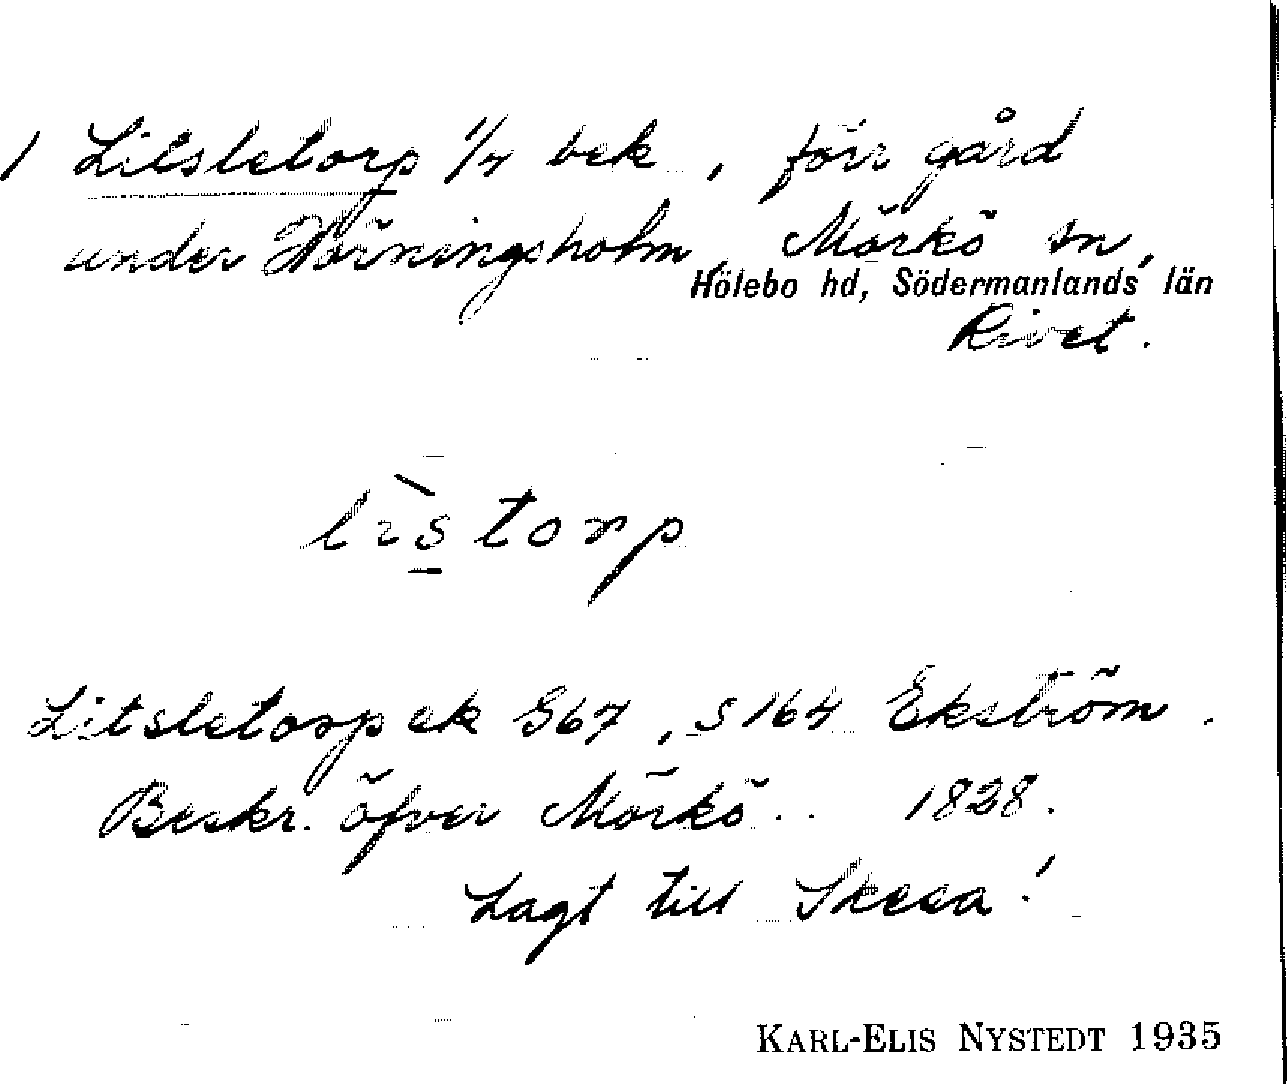 1 Litsletorp 1/4 bek, förr gård
under Hörningsholm, Mörkö sn,
Hölebo hd, Södermanlands län
Rivet.
lìstorp
Litsletorp ek G67, s 164 Ekström.
Beskr. öfver Mörkö .. 1828.
Lagt till Skesa!
KARL-ELIS NYSTEDT 1935